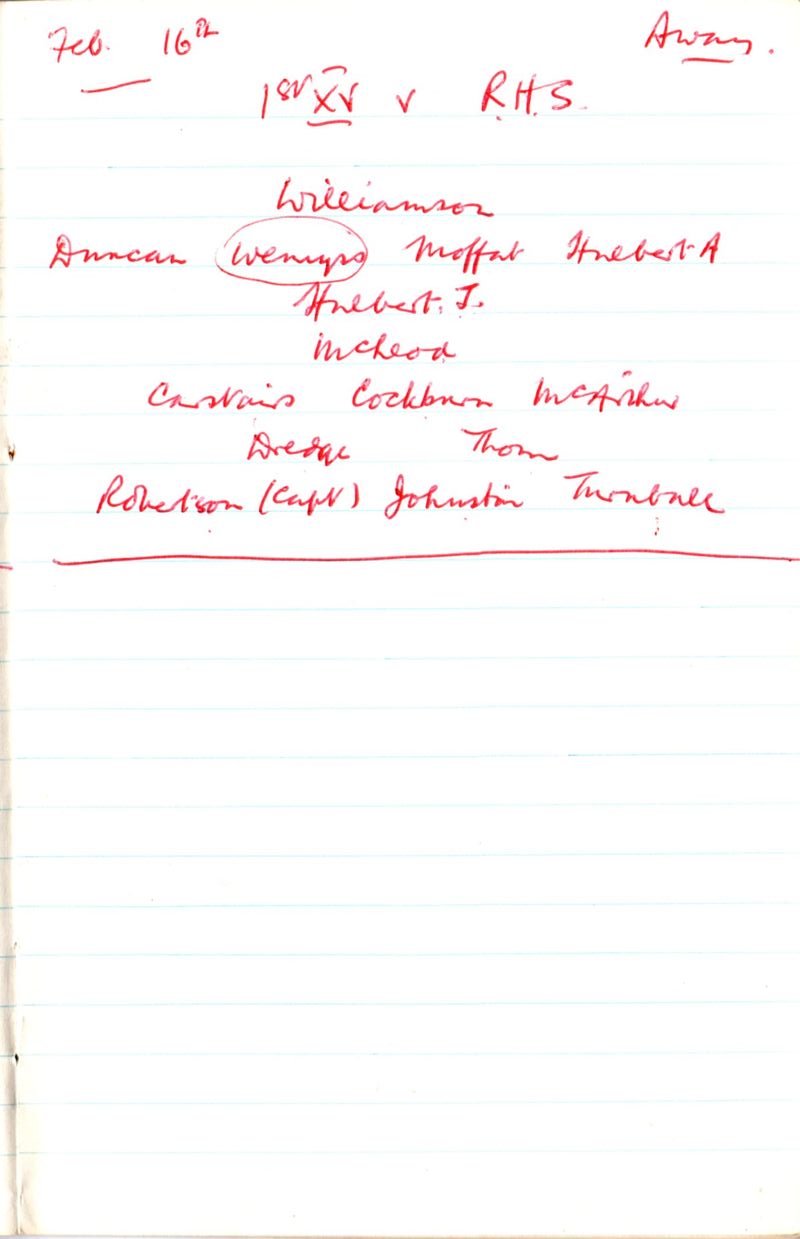 Feb. 16th Away.
1st XV v R.H.S.
Williamson
Duncan Wemyss Moffat Hulbert A
Hulbert. J.
McLeod
Carstairs Cockburn McArthur
Dredge Thom
Robertson (Capt) Johnston Turnbull